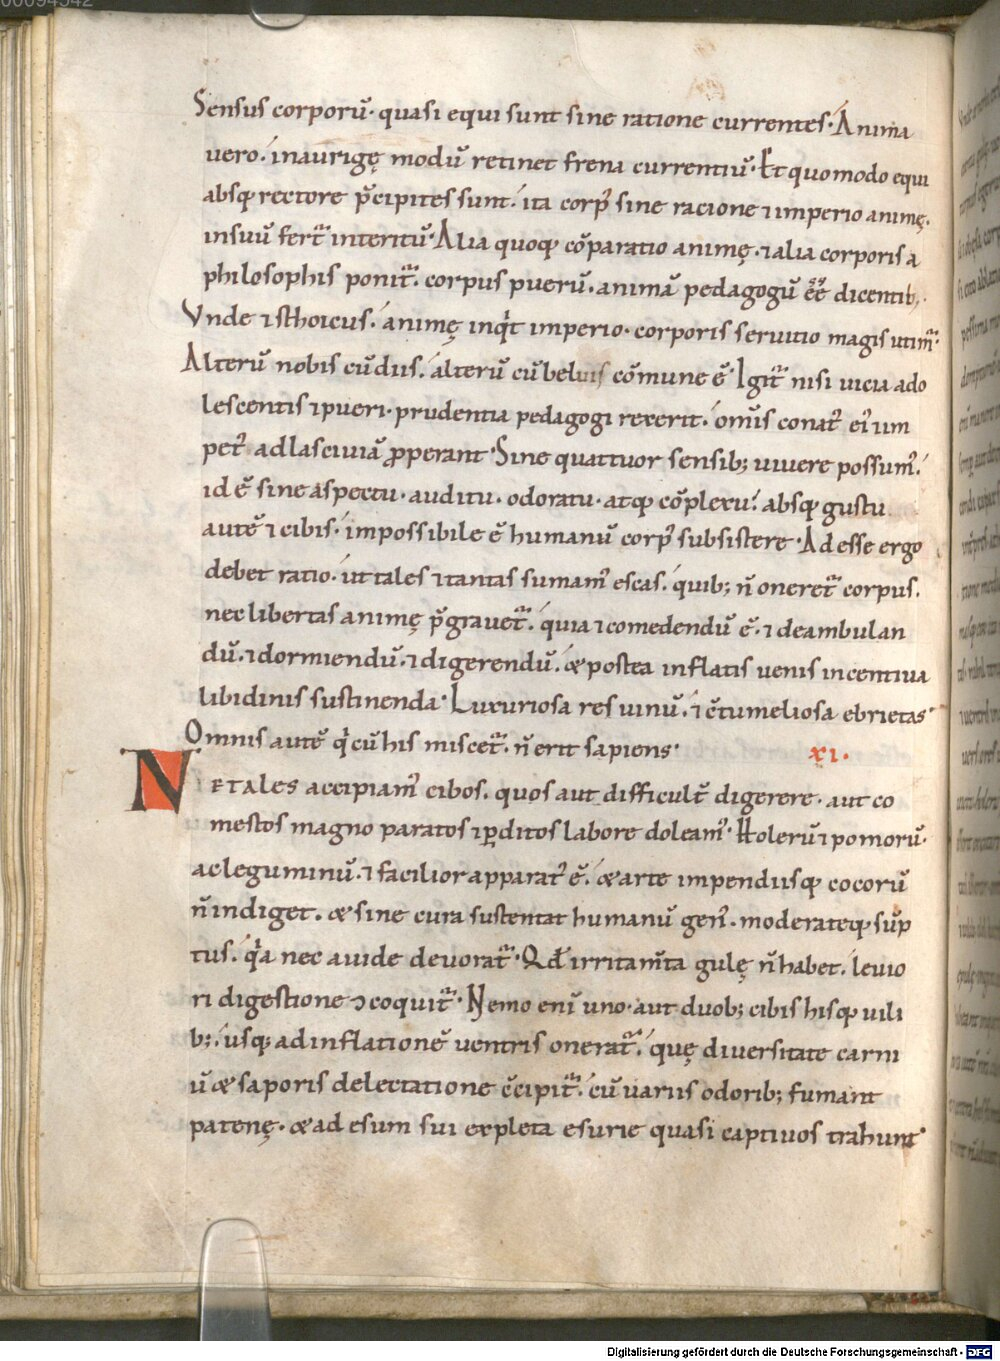 00094542
Sensus corporū· quasi equi sunt sine ratione currentes· Anima
vero· in aurigę modū retinet frena currentiū· Et quomodo equi
absq; rectore p̄cipites sunt· ita corp᷒ sine racione ⁊ imperio animę·
in suū fert᷑ interitū· Alia quoq; cōparatio animę· ⁊ alia corporis a
philosophis ponit᷑· corpus puerū· animā pedagogū ē̄ē̄ dicentib;·
Vnde ⁊ sthoicus· animę inqͥt imperio· corporis servitio magis utim᷑·
Alterū nobis cū diis· alterū cū beluis cōmune ē· Igit᷑ nisi vicia ado
lescentis ⁊ pueri· prudentia pedagogi rexerit· om̄is conat᷒ ei᷒ im
pet᷒ ad lasciviā ꝓperant· Sine quattuor sensib; vivere possum᷒·
id ē sine aspectu· auditu· odoratu· atq; cōplexu· absq; gustu
autē ⁊ cibis· impossibile ē humanū corp᷒ subsistere· Adesse ergo
debet ratio· ut tales ⁊ tantas sumam᷒ escas· quib; n̄ oneret᷑ corpus·
nec libertas animę p̄gravet᷑· quia ⁊ comedendū ē· ⁊ deambulan
dū· ⁊ dormiendū· ⁊ digerendū· & postea inflatis venis incentiva
libidinis sustinenda· Luxuriosa res vinū· ⁊ c̄tumeliosa ebrietas·
Omnis autē qͥ cū his miscet᷑· n̄ erit sapiens·
xi·
NE TALES accipiam᷒ cibos· quos aut difficult̄ digerere· aut co
mestos magno paratos ⁊ ꝑditos labore doleam᷒· Holerū ⁊ pomorū·
ac leguminū· ⁊ facilior apparat᷒ ē· & arte impendiisq; cocorū
n̄ indiget· & sine cura sustentat humanū gen᷒· moderateq; sūp
tus· qͣa nec avide devorat᷑· Qd̄ irritam̄ta gulę n̄ habet· levio
ri digestione ɔcoquit᷑· Nemo enī uno· aut duob; cibis hisq; vili
b;· usq; ad inflationē ventris onerat᷑· quę diversitate carni
ū & saporis delectatione c̄cipit᷑· cū variis odorib; fumant
patenę· & ad esum sui expleta esurie quasi captivos trahunt·
Digitalisierung gefördert durch die Deutsche Forschungsgemeinschaft - DFG